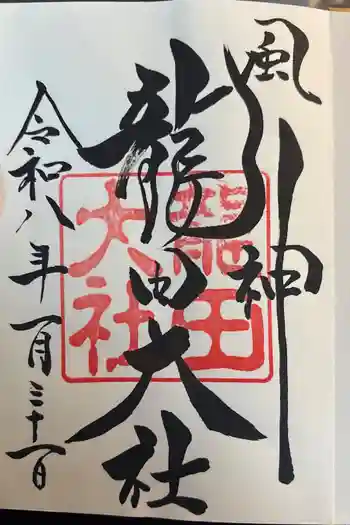 風神
龍田大社
龍田大社
令和八年一月三十一日